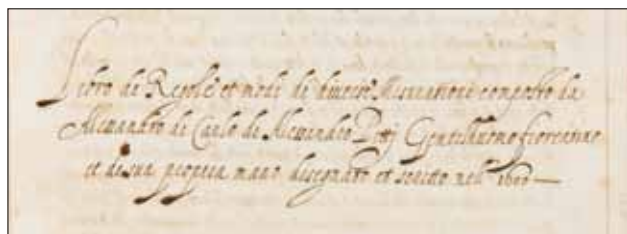 Libro di Regole et modi di diverse Misurationi composto da
Alessandro di Carlo di Alessandro Gentilhuomo fiorentino
et di sua propria mano disegnato et scritto nell 1600